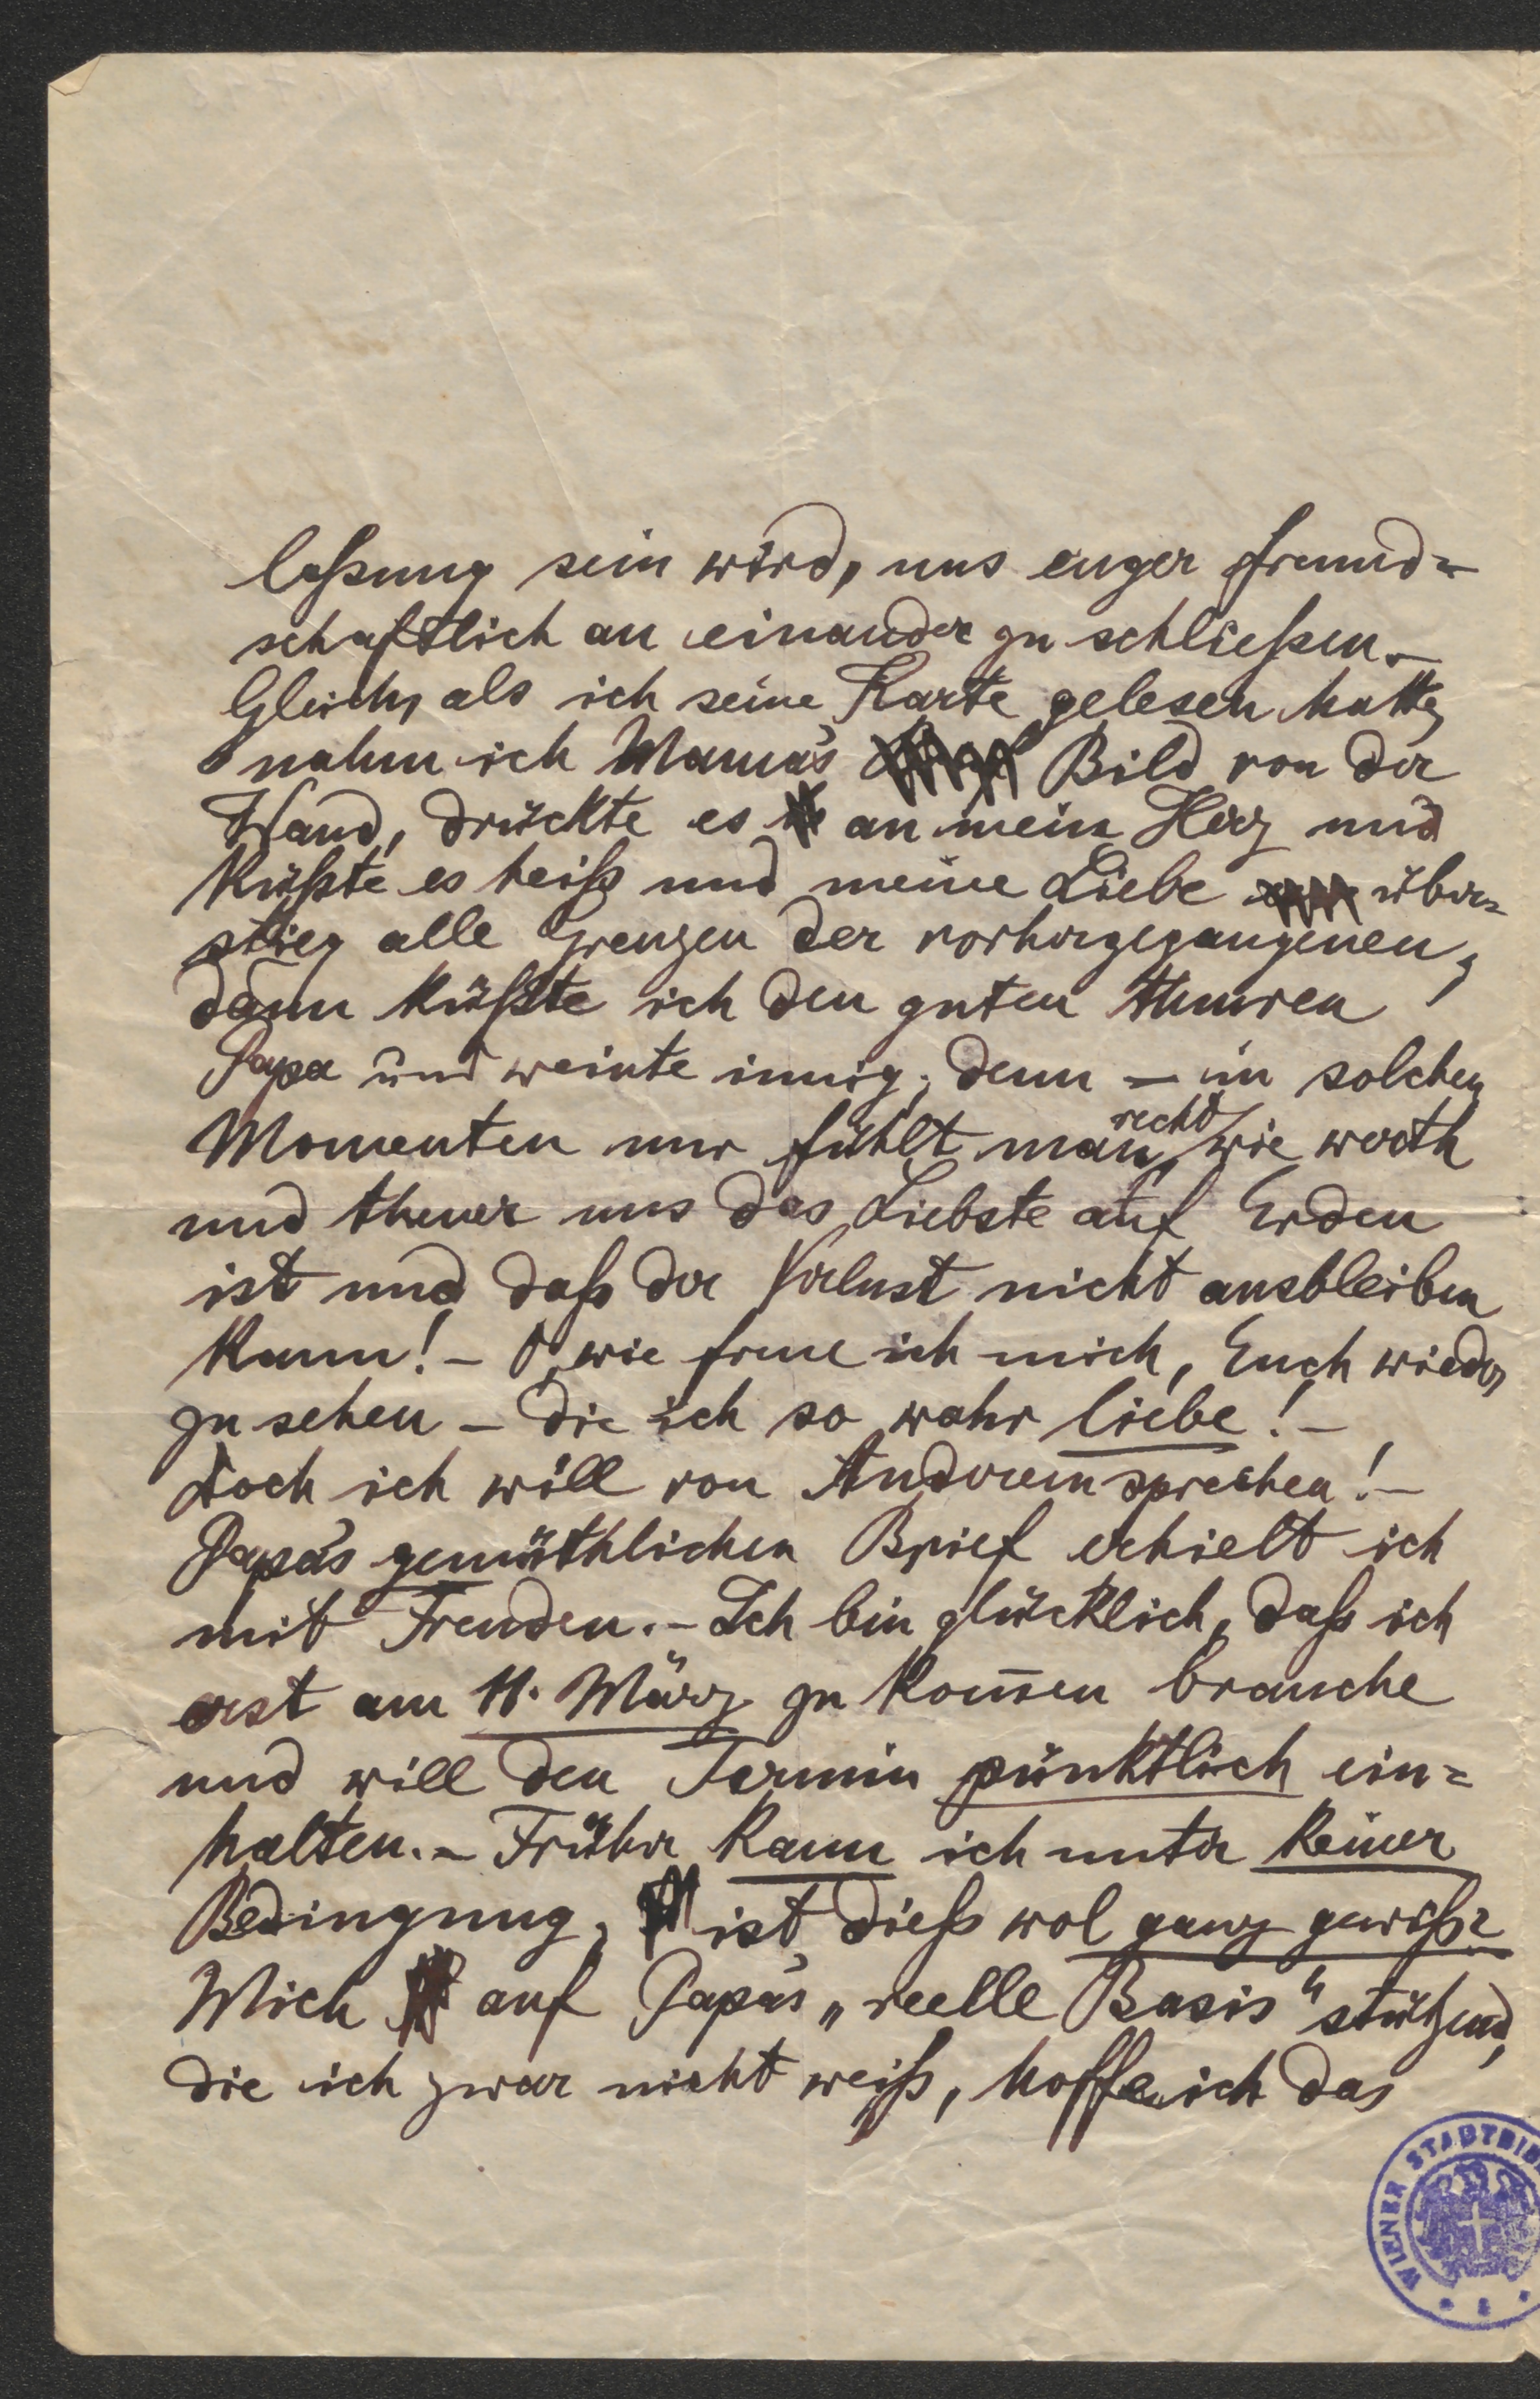 laßung sein wird, uns enger freund=
schaftlich an einander zu schließen.–
Gleich, als ich seine Karte gelesen hatte,
nahm ich Mama's Bild von der
Wand, drückte es an mein Herz und
küßte es heiß und meine Liebe über=
stieg alle Grenzen der vorhergegangenen,
dann küßte ich den guten theuren
Papa und weinte innig, denn – in solchen
Momenten nur fühlt man recht, wie werth
und theuer uns das Liebste auf Erden
ist und daß der Verlust nicht ausbleiben
kann! – O, wie freue ich mich, Euch wieder
zu sehen – die ich so wahr liebe! –
Doch ich will von Anderem sprechen! –
Papa's gemüthlichen Brief erhielt ich
mit Freuden. – Ich bin glücklich, daß ich
erst am 11. März zu kom̅en brauche
und will den Termin pünktlich ein=
halten. – Früher kann ich unter keiner
Bedingung, ist dieß wol ganz gewiß?
Mich auf Papa's „reelle Basis" stützend,
die ich zwar nicht weiß, hoffe ich das
WIENER STADTBI